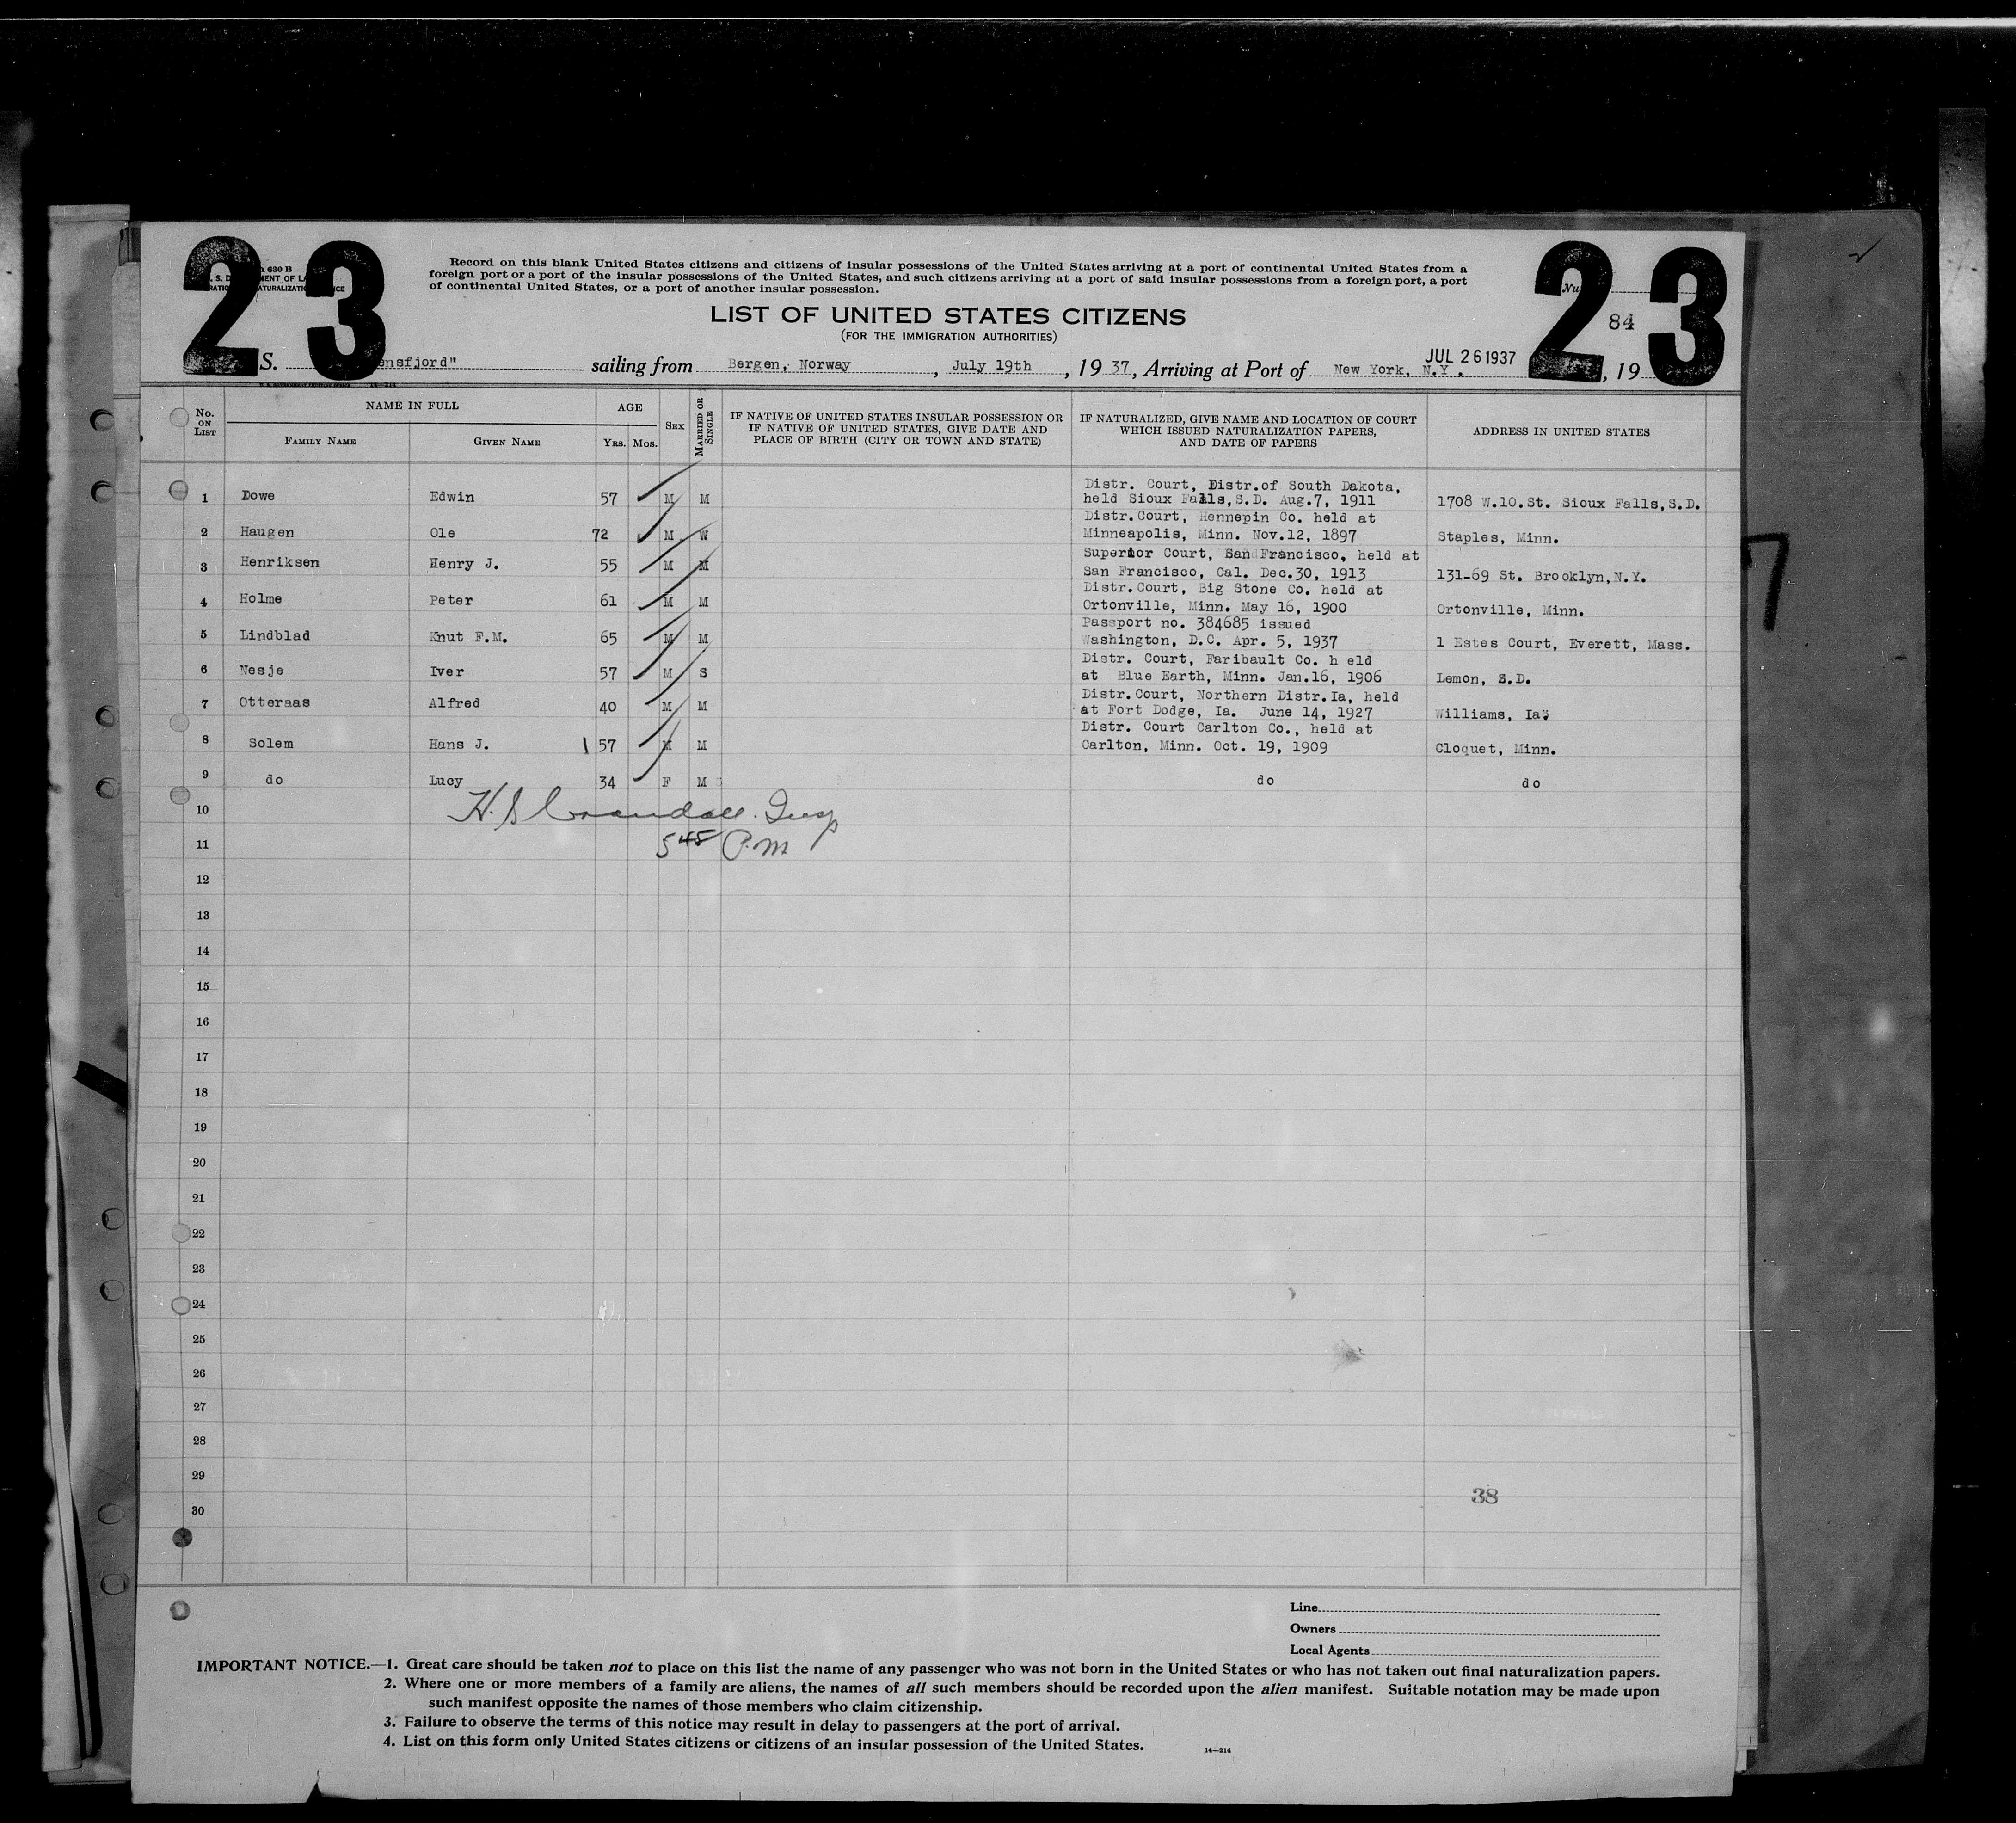 23
23
630 B
Record on this blank United States citizens and citizens of insular possessions of the United States arriving at a port of continental United States from a
foreign port or a port of the insular possessions of the United States, and such citizens arriving at a port of said insular possessions from a foreign port, a port
of continental United States, or a port of another insular possession.
84
LIST OF UNITED STATES CITIZENS
(FOR THE IMMIGRATION AUTHORITIES)
S. ensfjord" sailing from Bergen, Norway, July 19th, 1937, Arriving at Port of New York, N.Y. JUL 26 1937, 19
No. ON LIST
NAME IN FULL
FAMILY NAME GIVEN NAME
AGE
YRS. MOS.
SEX
MARRIED OR SINGLE
IF NATIVE OF UNITED STATES INSULAR POSSESSION OR
IF NATIVE OF UNITED STATES, GIVE DATE AND
PLACE OF BIRTH (CITY OR TOWN AND STATE)
IF NATURALIZED, GIVE NAME AND LOCATION OF COURT
WHICH ISSUED NATURALIZATION PAPERS,
AND DATE OF PAPERS
ADDRESS IN UNITED STATES
Distr. Court, Distr.of South Dakota,
1 Dowe Edwin 57 M M held Sioux Falls,S.D. Aug.7, 1911 1708 W.10.St. Sioux Falls,S.D.
Distr.Court, Hennepin Co. held at
2 Haugen Ole 72 M W Minneapolis, Minn. Nov.12, 1897 Staples, Minn.
Superior Court, San Francisco, held at
3 Henriksen Henry J. 55 M M San Francisco, Cal. Dec.30, 1913 131-69 St. Brooklyn,N.Y.
Distr.Court, Big Stone Co. held at
4 Holme Peter 61 M M Ortonville, Minn. May 16, 1900 Ortonville, Minn.
Passport no. 384685 issued
5 Lindblad Knut F.M. 65 M M Washington, D.C. Apr. 5, 1937 1 Estes Court, Everett, Mass.
Distr. Court, Faribault Co. h eld
6 Nesje Iver 57 M S at Blue Earth, Minn. Jan.16, 1906 Lemon, S.D.
Distr.Court, Northern Distr.Ia, held
7 Otteraas Alfred 40 M M at Fort Dodge, Ia. June 14, 1927 Williams, Ia.
Distr. Court Carlton Co., held at
8 Solem Hans J. 57 M M Carlton, Minn. Oct. 19, 1909 Cloquet, Minn.
9 do Lucy 34 F M do do
10 H. S. Crandall. Insp
11 5 45 P.M
12
13
14
15
16
17
18
19
20
21
22
23
24
25
26
27
28
29
38
30
Line
Owners
Local Agents
IMPORTANT NOTICE.—1. Great care should be taken not to place on this list the name of any passenger who was not born in the United States or who has not taken out final naturalization papers.
2. Where one or more members of a family are aliens, the names of all such members should be recorded upon the alien manifest. Suitable notation may be made upon
such manifest opposite the names of those members who claim citizenship.
3. Failure to observe the terms of this notice may result in delay to passengers at the port of arrival.
4. List on this form only United States citizens or citizens of an insular possession of the United States.
14—214